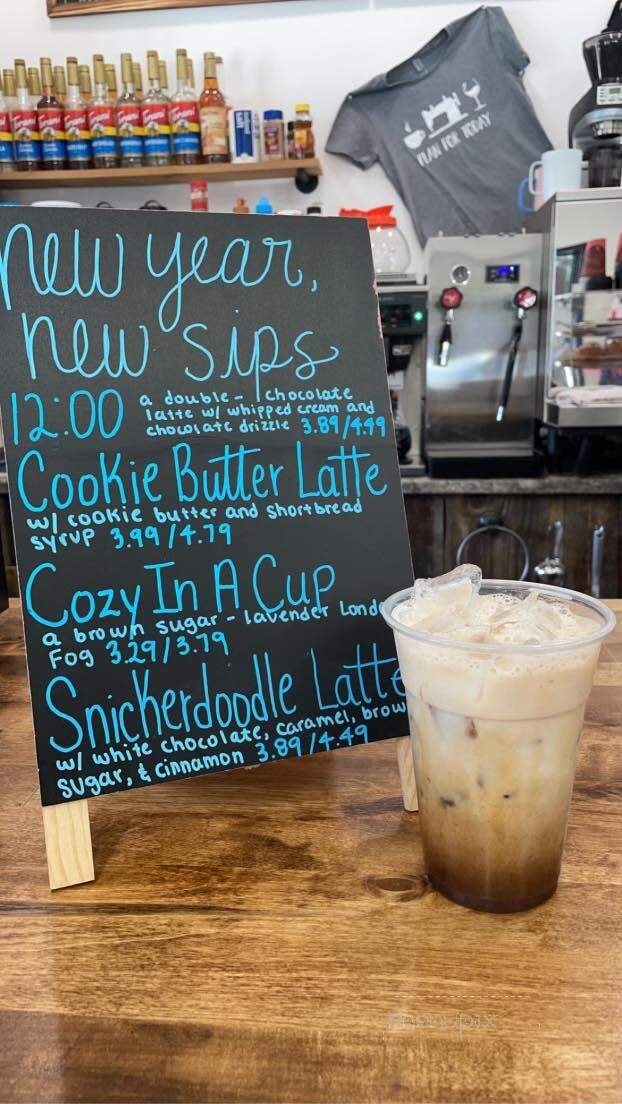 Torani Torani Torani Torani Torani
PLAN FOR TODAY
new year,
new sips
12:00 a double-chocolate
latte w/ whipped cream and
chocolate drizzle 3.89/4.49
Cookie Butter Latte
w/ cookie butter and shortbread
syrup 3.99/4.79
Cozy In A Cup
a brown sugar-lavender Londo
Fog 3.29/3.79
Snickerdoodle Latte
w/ white chocolate, caramel, brow
sugar, & cinnamon 3.89/4.49